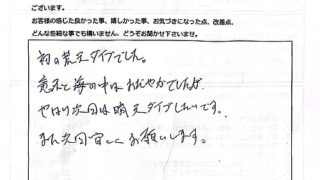 ございます。
お客様の感じた良かった事、嬉しかった事、お気づきになった点、改善点、
どんな些細な事でも構いません、どうぞお聞かせ下さいませ。
初の荒天ダイブでした。
意外と海の中はおだやかでしたが
やはり次回は晴天ダイブしたいです。
また次回宜しくお願いします。